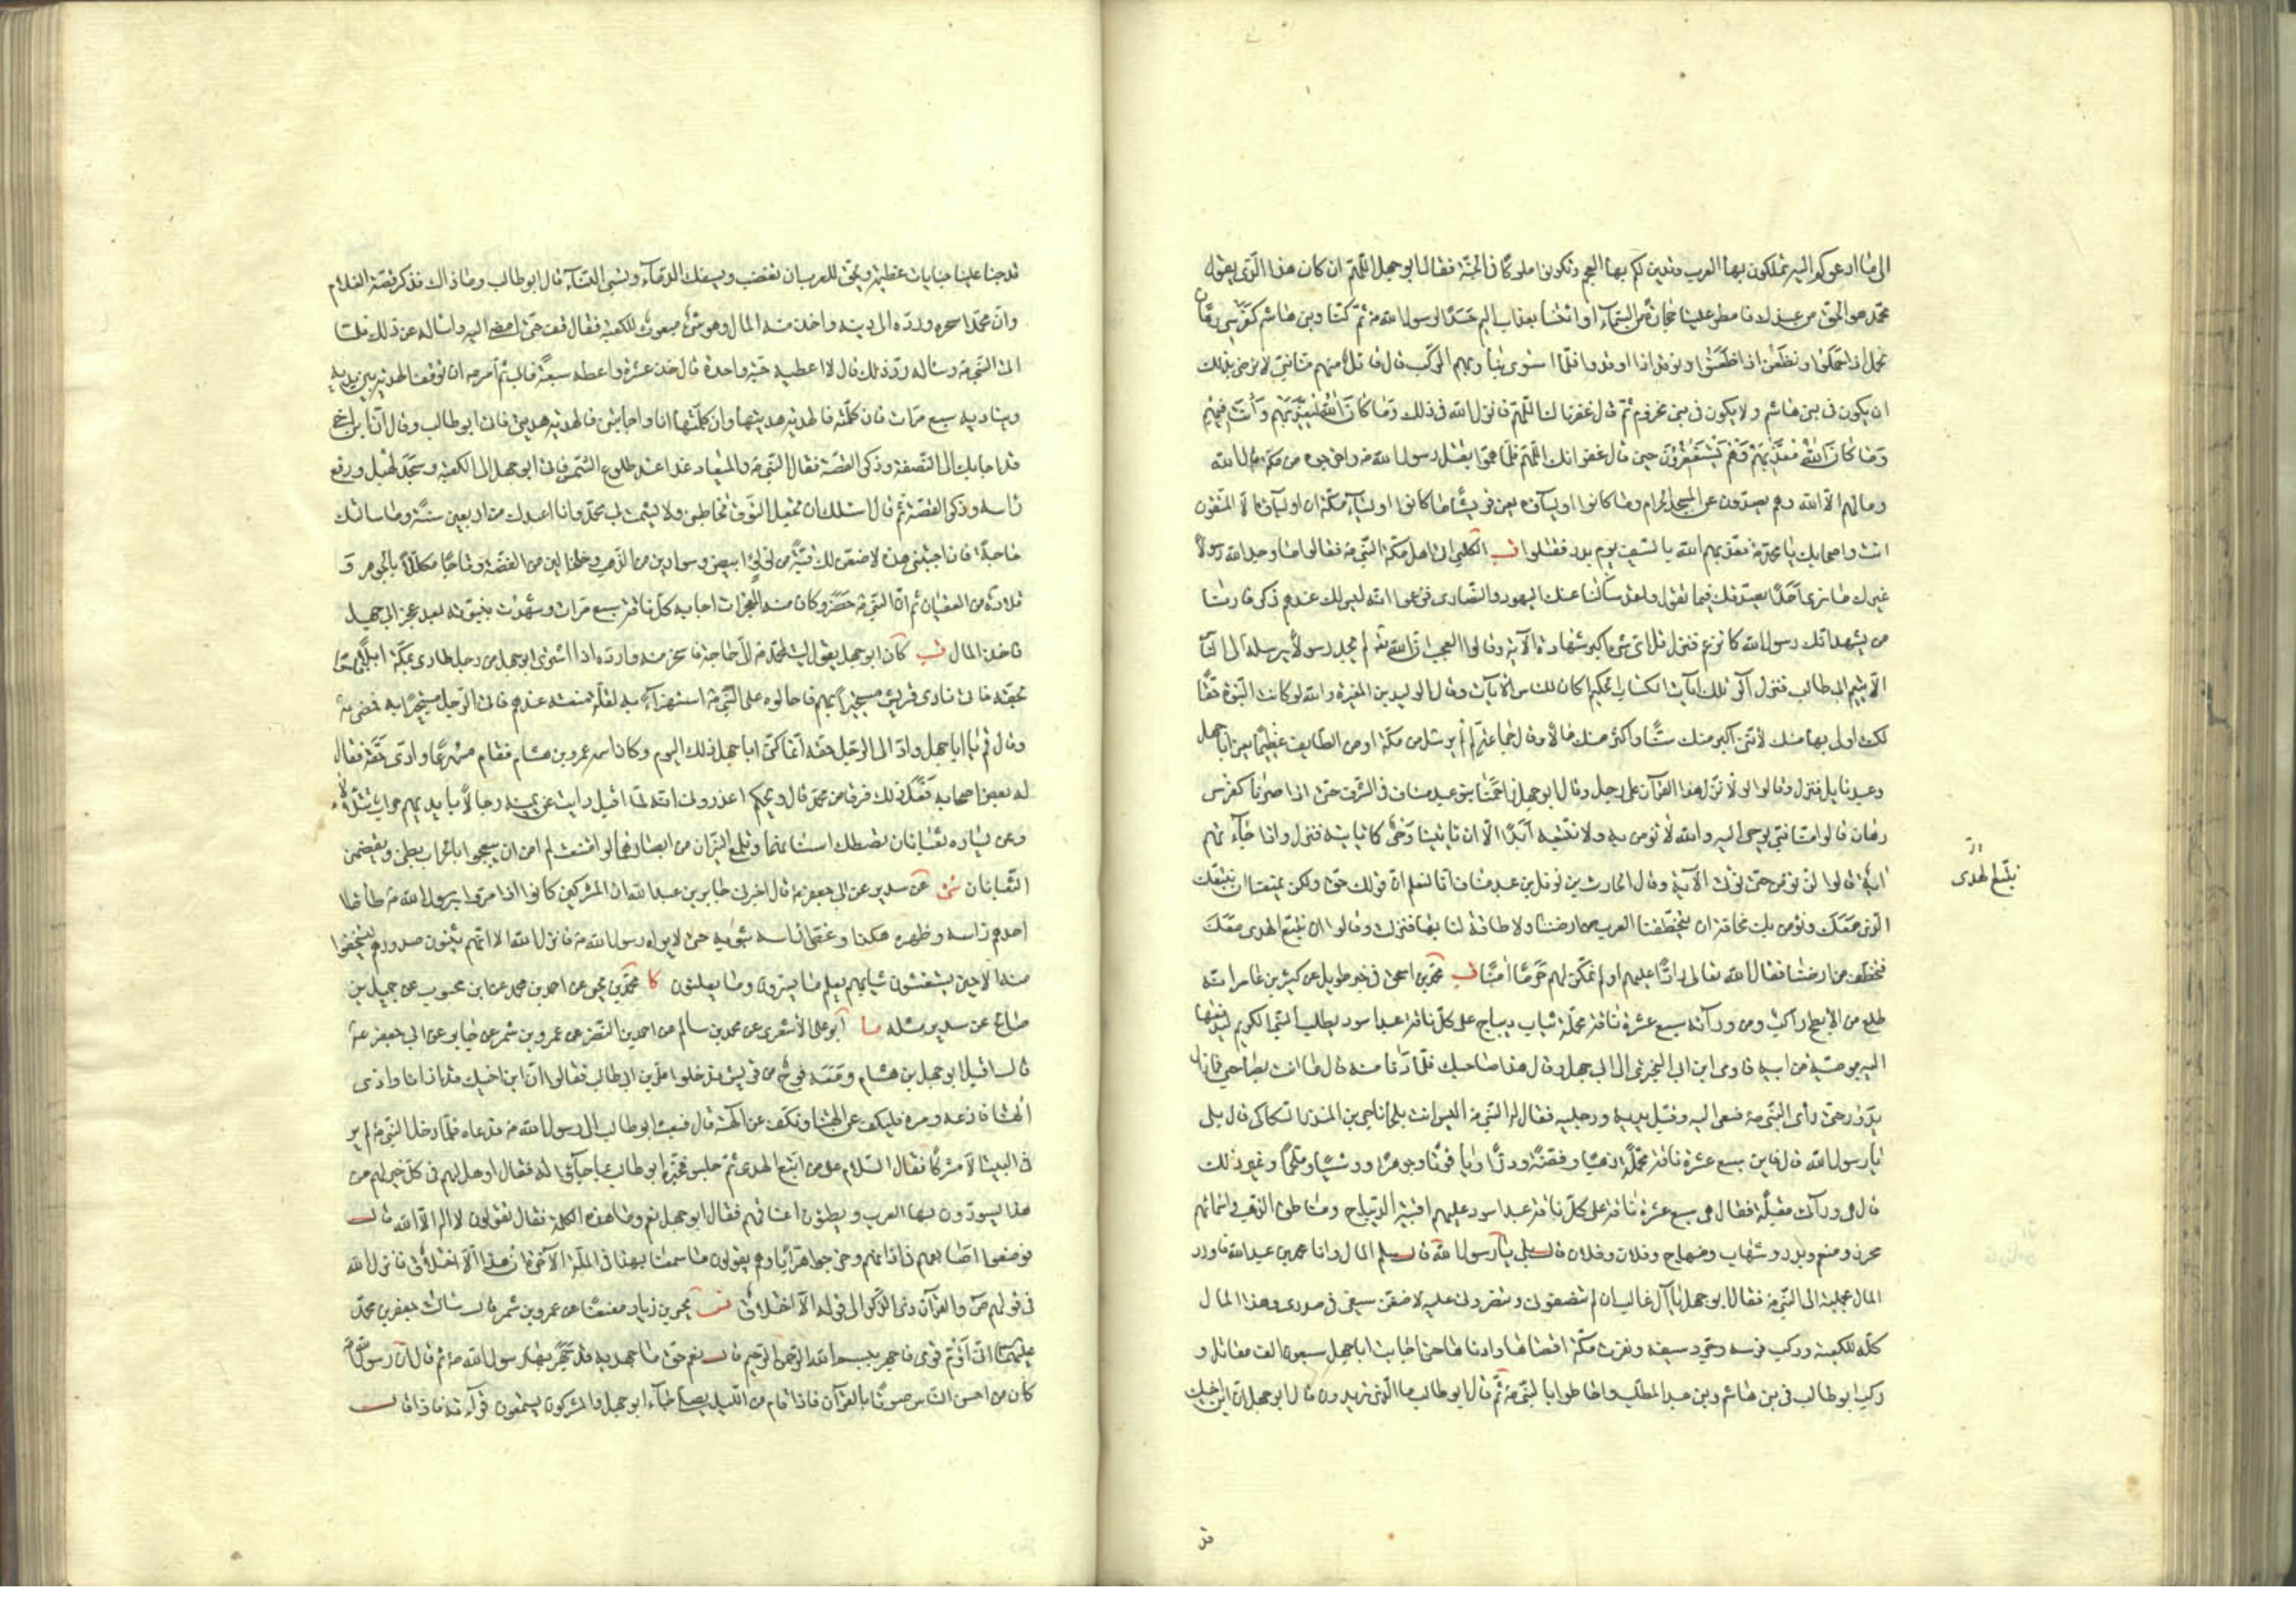 الى ما ادعوكم اليه تملكون بها العرب وتدين لكم بها العجم وتكونون ملوكا في الجنة فقال ابو جهل اللهم ان كان هذا الذي يقول
محمد هو الحق من عندك فامطر علينا حجارة من السماء او ائتنا بعذاب اليم حسدا لرسول الله ص ثم كنا وبني هاشم كفرسي رهان
نحمل اذا حملوا ونظعن اذا ظعنوا ونوقد اذا اوقدوا فلما استوى بنا وبهم الركب قال قائل منهم منا نبي لا نرضى بذلك
ان يكون في بني هاشم ولا يكون في بني مخزوم ثم قال غفرانك اللهم فانزل الله في ذلك وما كان الله ليعذبهم وانت فيهم
وما كان الله معذبهم وهم يستغفرون حين قال غفرانك اللهم فلما هموا بقتل رسول الله ص واخرجوه من مكة قال الله
وما لهم الا الله وهم يصدون عن المسجد الحرام وما كانوا اولياءه يعني قريشا ما كانوا اولياء مكة ان اولياؤه الا المتقون
انت واصحابك يا محمد ص فعذبهم الله بالسيف يوم بدر فقتلوا قب الكلبي اتى اهل مكة النبي ص فقالوا ما وجد الله رسولا
غيرك ما نرى احدا يصدقك فيما تقول ولقد سألنا عنك اليهود والنصارى فزعموا انه ليس لك عندهم ذكر فارنا
من يشهد انك رسول الله كما تزعم فنزل قل اي شيء اكبر شهادة الآية وقالوا العجب ان الله تعالى لم يجد رسولا يرسله الى الناس
الا يتيم ابي طالب فنزل الر تلك آيات الكتاب الحكيم اكان للناس الآيات وقال الوليد بن المغيرة والله لو كانت النبوة حقا
لكنت اولى بها منك لانني اكبر منك سنا واكثر منك مالا وقال جماعة لم لم يرسل من مكة او من الطايف عظيما يعني ابا جهل
وعبد نايل فنزل وقالوا لولا نزل هذا القرآن على رجل وقال ابو جهل زاحمنا بنو عبد مناف في الشرف حتى اذا صرنا كفرسي
رهان قالوا منا نبي يوحى اليه والله لا نؤمن به ولا نتبعه ابدا الا ان يأتينا وحي كما يأتيه فنزل واذا جاءتهم
آية قالوا لن نؤمن حتى نؤتى الآية وقال الحارث بن نوفل بن عبد مناف انا لنعلم ان قولك حق ولكن يمنعنا ان نتبعك
الذي معك ونؤمن بك مخافة ان يتخطفنا العرب من ارضنا ولا طاقة لنا بها فنزلت وقالوا ان نتبع الهدى معك
نتخطف من ارضنا فقال الله تعالى رادا عليهم اولم نمكن لهم حرما آمنا قب محمد بن اسحق في خبر طويل عن كثير بن عامر انه
طلع من الابطح راكب ومن ورائه سبع عشرة ناقة محملة ثياب ديباج على كل ناقة عبد اسود يطلب النبي الكريم ليدفعها
اليه بوصية من ابيه فاومى ابن ابي البختري الى ابي جهل وقال هذا صاحبك فلما دنا منه قال ما انت بصاحبي فما زال
يدور حتى رأى النبي ص فسعى اليه وقبل يديه ورجليه فقال له النبي ص اليس انت ناجي بن المنذر السكاكي قال بلى
يا رسول الله قال اين سبع عشرة ناقة محملة ذهبا وفضة ودرا وياقوتا وجوهرا ووشيا وملحما وغير ذلك
قال هي ورائي مقبلة فقال هي سبع عشرة ناقة على كل ناقة عبد اسود عليهم اقبية الديباج ومناطق الذهب واسماؤهم
محرز ومنعم وبدر وشهاب ومنهاج وفلان وفلان قال بلى يا رسول الله قال سلم المال وانا محمد بن عبد الله فاورد
المال بجملته الى النبي ص فقال ابو جهل يا آل غالب ان لم تنصفوني وتنصروني عليه لاضعن سيفي في صدري وهذا المال
كله للكعبة وركب فرسه وجرد سيفه ونفرت مكة اقصاها وادناها حتى اجابت ابا جهل سبعون الف مقاتل و
ركب ابو طالب في بني هاشم وبني عبد المطلب واحاطوا بالنبي ص ثم قال ابو طالب ما الذي تريدون قال ابو جهل ان ابن اخيك
نتبع الهدى
قد
قد جنا علينا جنايات عظيمة ويحق للعرب ان تغضب ويسفك الدماء وتسبى النساء قال ابو طالب وما ذاك فذكر قصة الغلام
وان محمدا سحره ورده الى دينه واخذ منه المال وهو شيء مبعوث للكعبة فقال قف حتى امضي اليه واساله عن ذلك فلما
اتى النبي ص وساله رد ذلك قال لا اعطيه حبة واحدة قال خذ عشرة واعطه سبعة فابى ثم امر ص ان توقف الهدية بين يديه
ويناديه سبع مرات فان كلمته فالهدية هديتها وان كلمتها انا واجابتني فالهدية هديتي فاتى ابو طالب وقال ان ابن اخي
قد اجابك الى النصفة وذكر القصة فقال النبي ص والميعاد غدا عند طلوع الشمس فاتى ابو جهل الى الكعبة وسجد لهبل ورفع
راسه وذكر القصة ثم قال اسئلك ان تجعل النوق تخاطبني ولا يشمت بي محمد وانا اعبدك من اربعين سنة وما سالتك
حاجة فان اجبتني هذه لاضعن لك قبة من لؤلؤ ابيض وسوارين من الذهب وخلخالين من الفضة وتاجا مكللا بالجوهر و
قلادة من العقيان ثم ان النبي ص حضر وكان منه المعجزات اجابه كل ناقة سبع مرات وشهدت بنبوته بعد عجز ابي جهل
فاخذ المال قب كان ابو جهل يقول ليت لمحمد ص الي حاجة فاسخر منه وارده اذ اشترى ابو جهل من رجل طارى بمكة ابلا فلواه
بحقه فاتى نادى قريش مستجيرا بهم فاحالوه على النبي ص استهزاء به لقلة منعته عندهم فاتى الرجل مستجيرا به فمضى معه
وقال قم يا ابا جهل واد الى الرجل حقه انما كنى ابا جهل ذلك اليوم وكان اسمه عمرو بن هشام فقام مسرعا وادى حقه فقال
له بعض اصحابه فعلت ذلك فرقا من محمد قال ويحكم اعذروني انه لما اقبل رايت عن يمينه رجالا بايديهم حراب تتلألأ
وعن يساره ثعبانان تصطك اسنانهما وتلمع النيران من ابصارهما لو امتنعت لم آمن ان يبعجوا بالحراب بطني ويقضمني
الثعبانان شى عن سدير عن ابي جعفر ع قال اخبرني جابر بن عبد الله ان المشركين كانوا اذا مروا برسول الله ص طأطأ
احدهم راسه وظهره هكذا وغطى راسه بثوبه حتى لا يراه رسول الله ص فانزل الله الا انهم يثنون صدورهم ليستخفوا
منه الا حين يستغشون ثيابهم يعلم ما يسرون وما يعلنون كا محمد بن يحيى عن احمد بن محمد عن ابن محبوب عن جميل بن
صالح عن سدير مثله كا ابو علي الاشعري عن محمد بن سالم عن احمد بن النضر عن عمرو بن شمر عن جابر عن ابي جعفر ع
قال اقبل ابو جهل بن هشام ومعه قوم من قريش فدخلوا على ابي طالب فقالوا ان ابن اخيك قد آذانا واذى
آلهتنا فادعه ومره فليكف عن آلهتنا ونكف عن الهه قال فبعث ابو طالب الى رسول الله ص فدعاه فلما دخل النبي ص لم ير
في البيت الا مشركا فقال السلام على من اتبع الهدى ثم جلس فخبره ابو طالب بما جاءوا له فقال او هل لهم في كلمة خير لهم من
هذا يسودون بها العرب ويطئون اعناقهم فقال ابو جهل نعم وما هذه الكلمة فقال تقولون لا اله الا الله قال
فوضعوا اصابعهم في آذانهم وخرجوا هرابا وهم يقولون ما سمعنا بهذا في الملة الآخرة ان هذا الا اختلاق فانزل الله
في قولهم ص والقرآن ذي الذكر الى قوله الا اختلاق فس يحيى بن زياد معنعنا عن عمرو بن شمر قال سالت جعفر بن محمد
عليهما السلام اني اؤم قومي فاجهر ببسم الله الرحمن الرحيم قال نعم حق فاجهر بها قد جهر بها رسول الله ص ثم قال ان رسول الله ص
كان من احسن الناس صوتا بالقرآن فاذا قام من الليل يصلي جاء ابو جهل والمشركون يستمعون قراءته فاذا قال